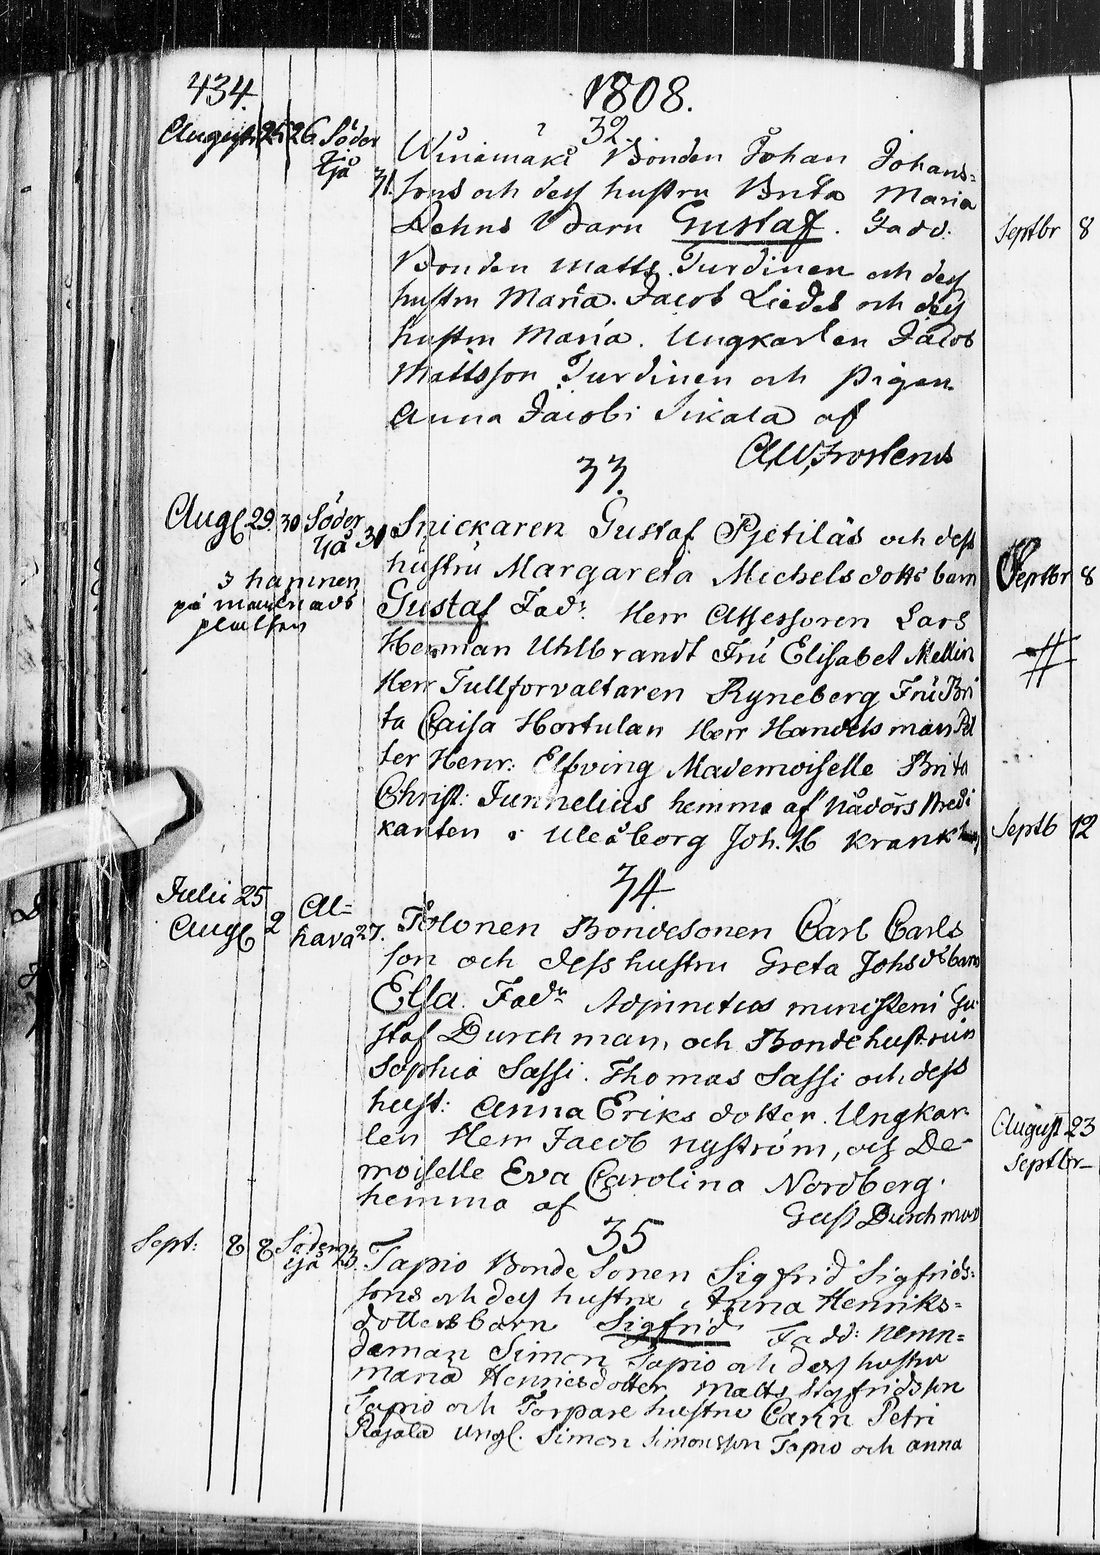 434.
1808.
32.
August 25 26 Söder
Yjå 31.
Winiemäki Bonden Johan Johans=
sons och dess hustru Brita Maria
Lehns barn Gustaf. Fadd:
Bonden Matts Turdinen och dess
hustru Maria. Jacob Liedes och dess
hustru Maria. Ungkarlen Jacob
Mattsson Turdinen och Pigan
Anna Jacobi Sikala af
A.W. Frosterus
33.
Aug 29. 30 Söder
Yjå 31
i hamnen
på marknads
platsen
Snickaren Gustaf Pjetiläs och dess
hustru Margareta Michelsdotts barn
Gustaf Fadr: Herr Assessoren Lars
Herman Uhlbrandt Fru Elisabet Mellin
Herr Tullforvaltaren Ryneberg Fru Bri
ta Caisa Hortulan Herr Handelsman Pet
ter Henr: Elfving Mademoiselle Brita
Christ: Junnelius hemma af Nådårs Predi
kanten i Uleåborg Joh. H. Krank
34.
Julii 25
Aug 2 Al=
hava 27.
Tolonen Bondesonen Carl Carls
son och dess hustru Greta Johsds barn
Elsa. Fadr Adjunctus ministerii Gu
staf Durchman, och Bondehustrun
Sophia Sassi. Thomas Sassi och dess
hust: Anna Eriksdotter. Ungkar
len Herr Jacob Nyström, och De-
moiselle Eva Carolina Nordberg.
hemma af Gust Durchman
35
Sept: 8 8 Söderm
Yjå 23.
Tapio Bonde Sonen Sigfrid Sigfrids=
sons och dess hustru Anna Henriks=
dotters barn Sigfrid Fadd: Nemn=
deman Simon Tapio och dess hustru
Maria Henricsdotter Matts Sigfridsson
Tapio och Torpare hustru Carin Petri
Rajala Ungl. Simon Simonsson Tapio och Anna
Septbr 8
Septbr 8
Septb 12
August 23
Septbr